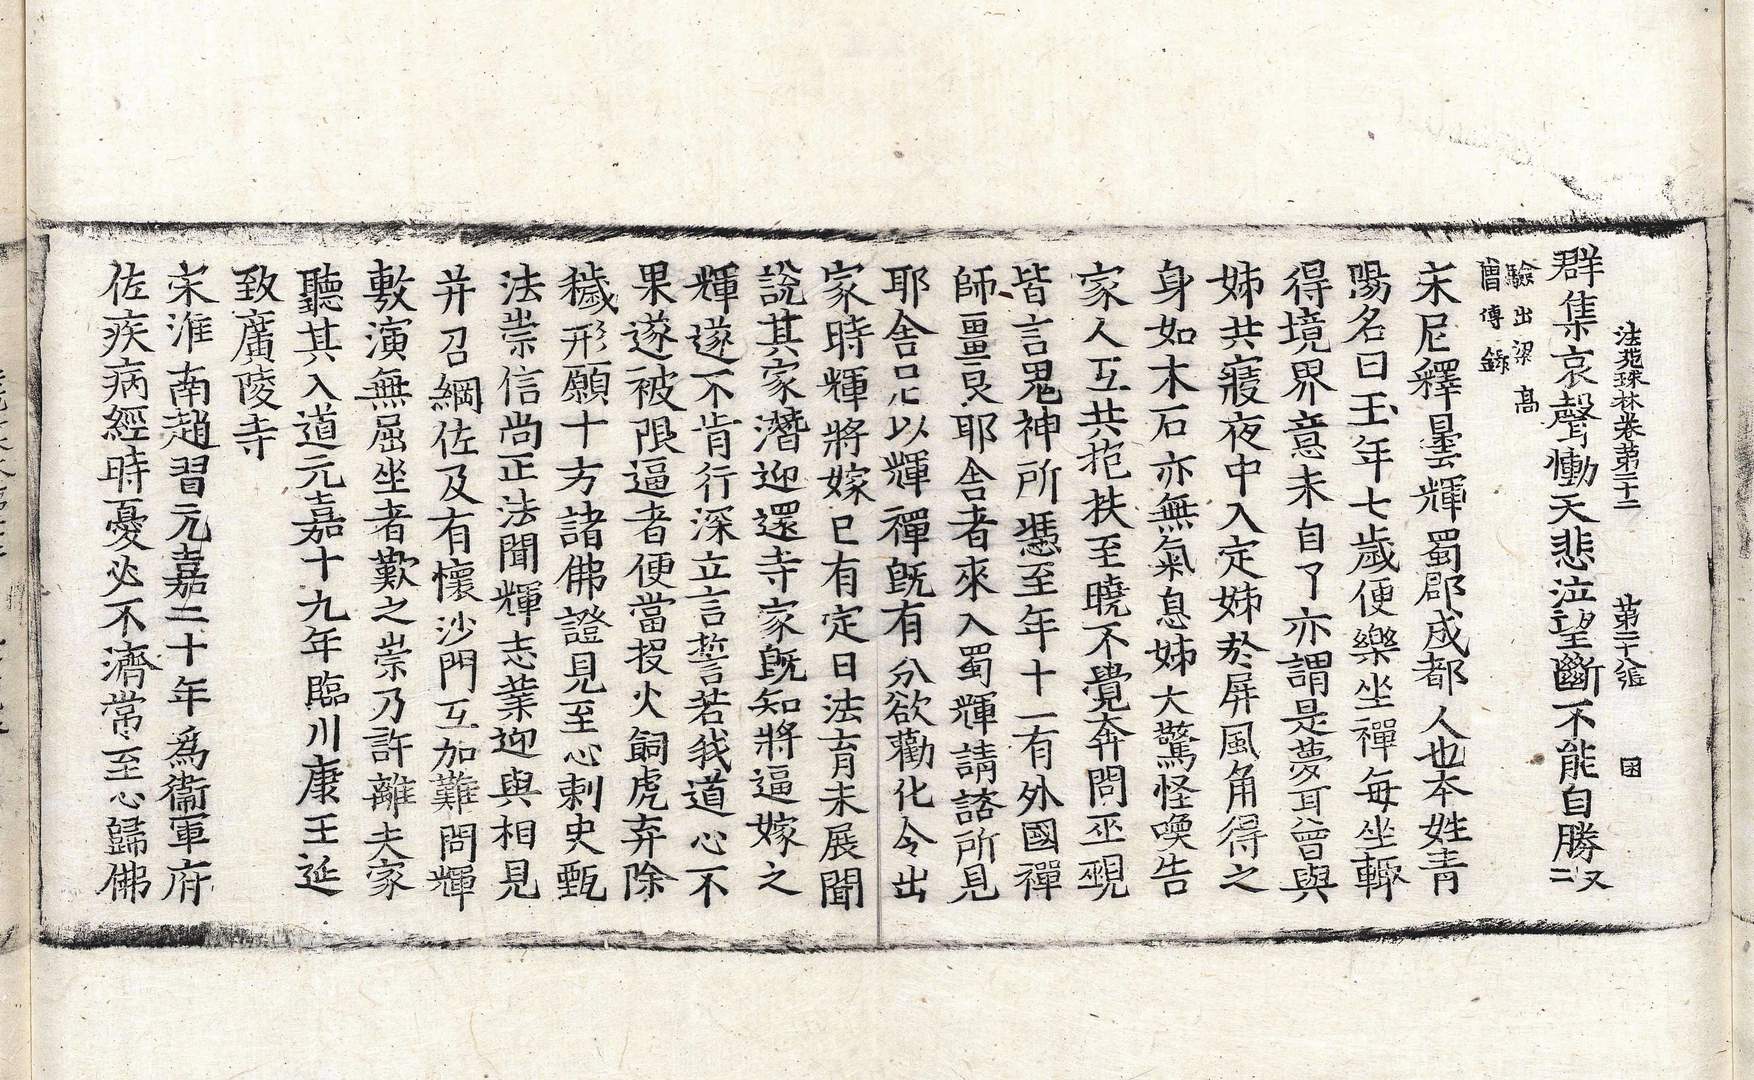 法苑珠林卷第二十二　第二十八張　困
群集哀聲慟天悲泣望斷不能自勝又二
驗出梁高
僧傳錄
宋尼釋曇輝蜀郡成都人也本姓青
陽名曰玉年七歲便樂坐禪每坐輙
得境界意未自了亦謂是夢耳曾與
姊共寢夜中入定姊於屏風角得之
身如木石亦無氣息姊大驚怪喚告
家人互共抱扶至曉不覺奔問巫覡
皆言鬼神所憑至年十一有外國禪
師畺良耶舍者來入蜀輝請諮所見
耶舍尼以輝禪旣有分欲勸化令出
家時輝將嫁已有定日法育未展聞
說其家潛迎還寺家旣知將逼嫁之
輝遂不肯行深立言誓若我道心不
果遂被限逼者便當投火飼虎弃除
穢形願十方諸佛證見至心刺史甄
法崇信尚正法聞輝志業迎與相見
并召綱佐及有懷沙門互加難問輝
敷演無屈坐者歎之崇乃許離夫家
聽其入道元嘉十九年臨川康王延
致廣陵寺
宋淮南趙習元嘉二十年爲衞軍府
佐疾病經時憂必不濟常至心歸佛